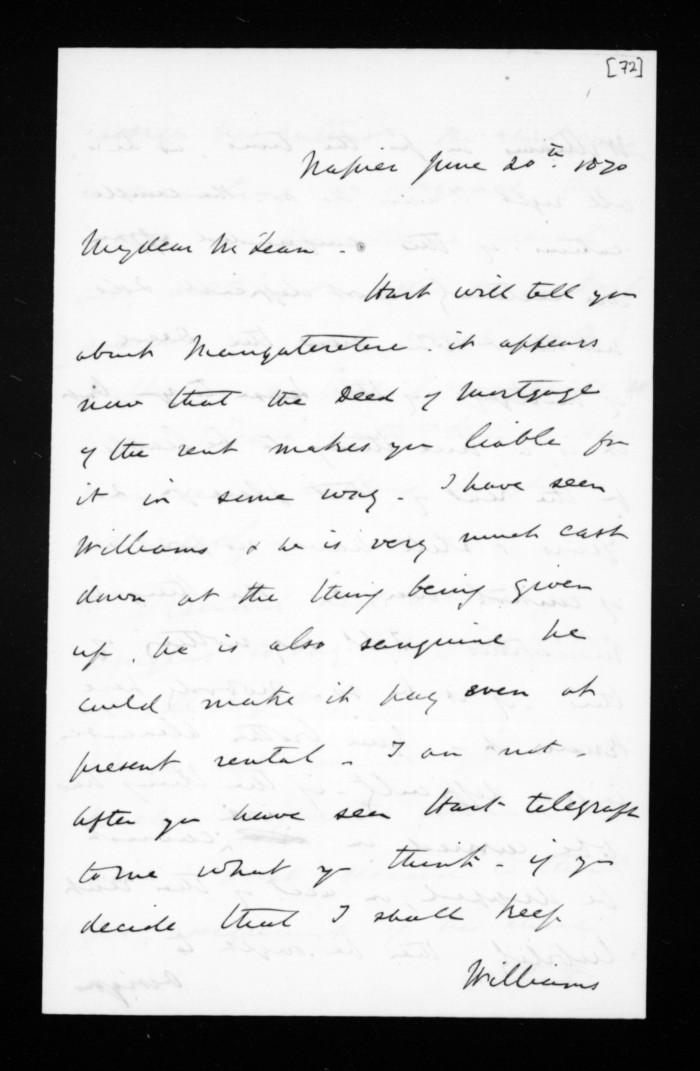 [72]
Napier June 20th. 1870
My dear McLean -
Hart will tell you
about Mangateretere. it appears
now that the Deed of Mortgage
of the rent makes you liable for
it in some way - I have seen
Williams & he is very much cast
down at the thing being given
up. he is also sanguine he
could make it pay even at
present rental - I am not -
After you have seen Hart telegraph
to me what you think - if you
decide that I shall keep
Williams